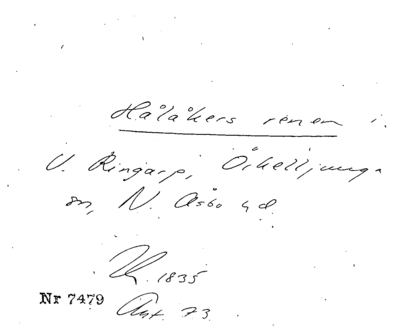 Hålåkers renen i
V. Ringarp, Örkelljunga
sn, N. Åsbo hd
1835
Nr 7479
Ant. 73